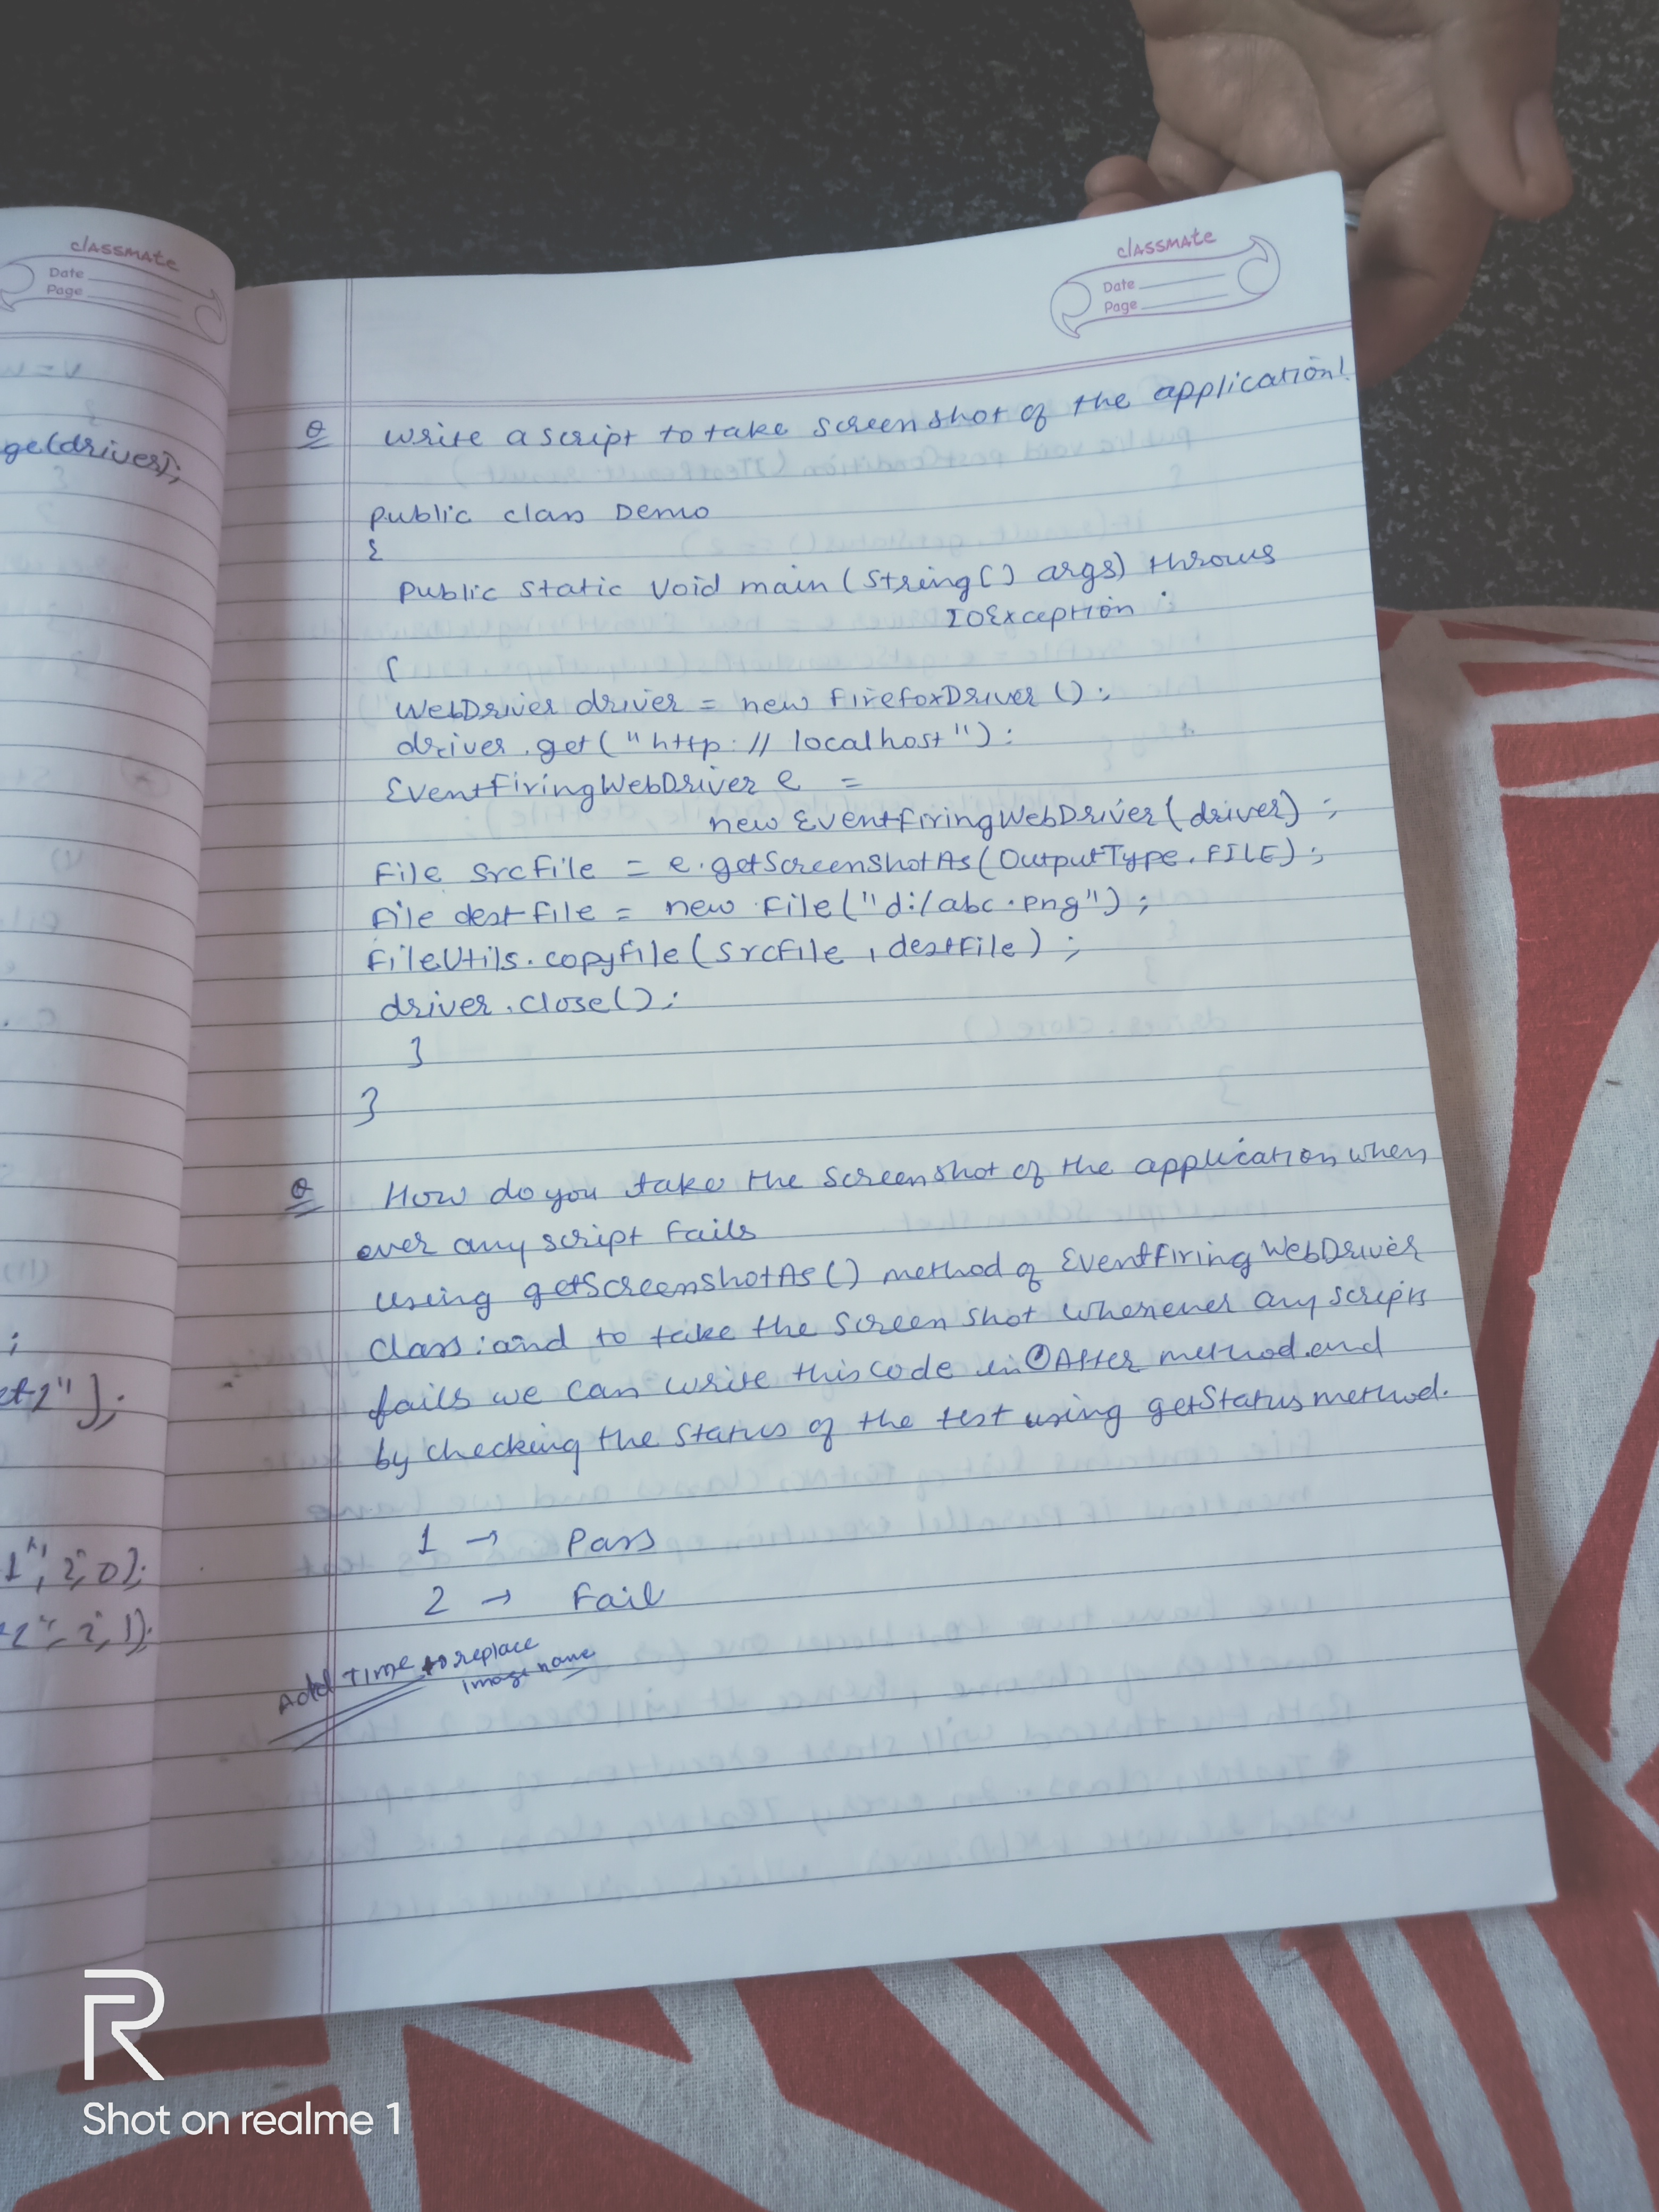 classmate
Date
Page
ge(driver);
et2");
1", 2, 0);
2", 2, 1);
classmate
Date
Page
Q Write a script to take screen shot of the application!
public class Demo
{
public static void main (String[] args) throws
IOException
{
WebDriver driver = new FirefoxDriver ();
driver.get("http://localhost");
EventFiringWebDriver e =
new EventFiringWebDriver(driver);
File srcFile = e.getScreenshotAs(OutputType.FILE);
File destFile = new File("d:/abc.png");
FileUtils.copyFile(srcFile, destFile);
driver.close();
}
}
Q How do you take the screen shot of the application when
ever any script fails
using getScreenshotAs() method of EventFiringWebDriver
class. and to take the screen shot whenever any scripts
fails we can write this code in @After method and
by checking the status of the test using getStatus method.
1 → Pass
2 → Fail
Add Time to replace
image name
R
Shot on realme 1